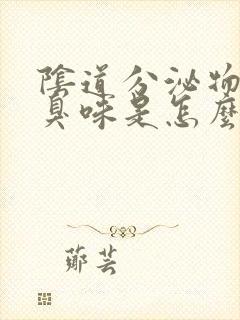 陰道分泌物
臭味是怎麼
鄭芸